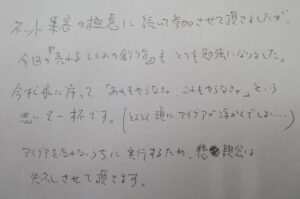 ネット集客の極意に続いて参加させて頂きましたが、
今日の『売れるしくみの創り方』もとても勉強になりました。
今すぐ家に帰って「あれもやらなきゃ、これもやらなきゃ」という
思いで一杯です。(どんどん頭にアイデアが浮かんでしまい…)
アイデアを忘れないうちに実行するため、懇親会は
失礼させて頂きます。